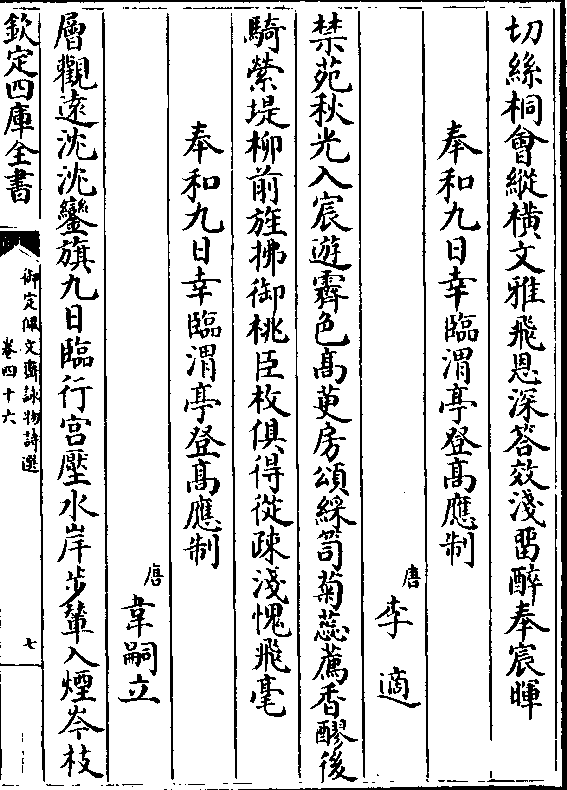 切絲桐會縱横文雅飛恩深答效淺留醉奉宸暉
奉和九日幸臨渭亭登髙應制
唐 李適
禁苑秋光入宸遊霽色髙萸房頒綵笥菊蕊薦香醪後
騎縈堤柳前旌拂御桃臣枚俱得從疎淺愧飛毫
奉和九日幸臨渭亭登髙應制
唐 韋嗣立
層觀遠沈沈鑾旗九日臨行宫壓水岸步輦入煙岑枝
欽定四庫全書
御定佩文齋詠物詩選
卷四十六
七